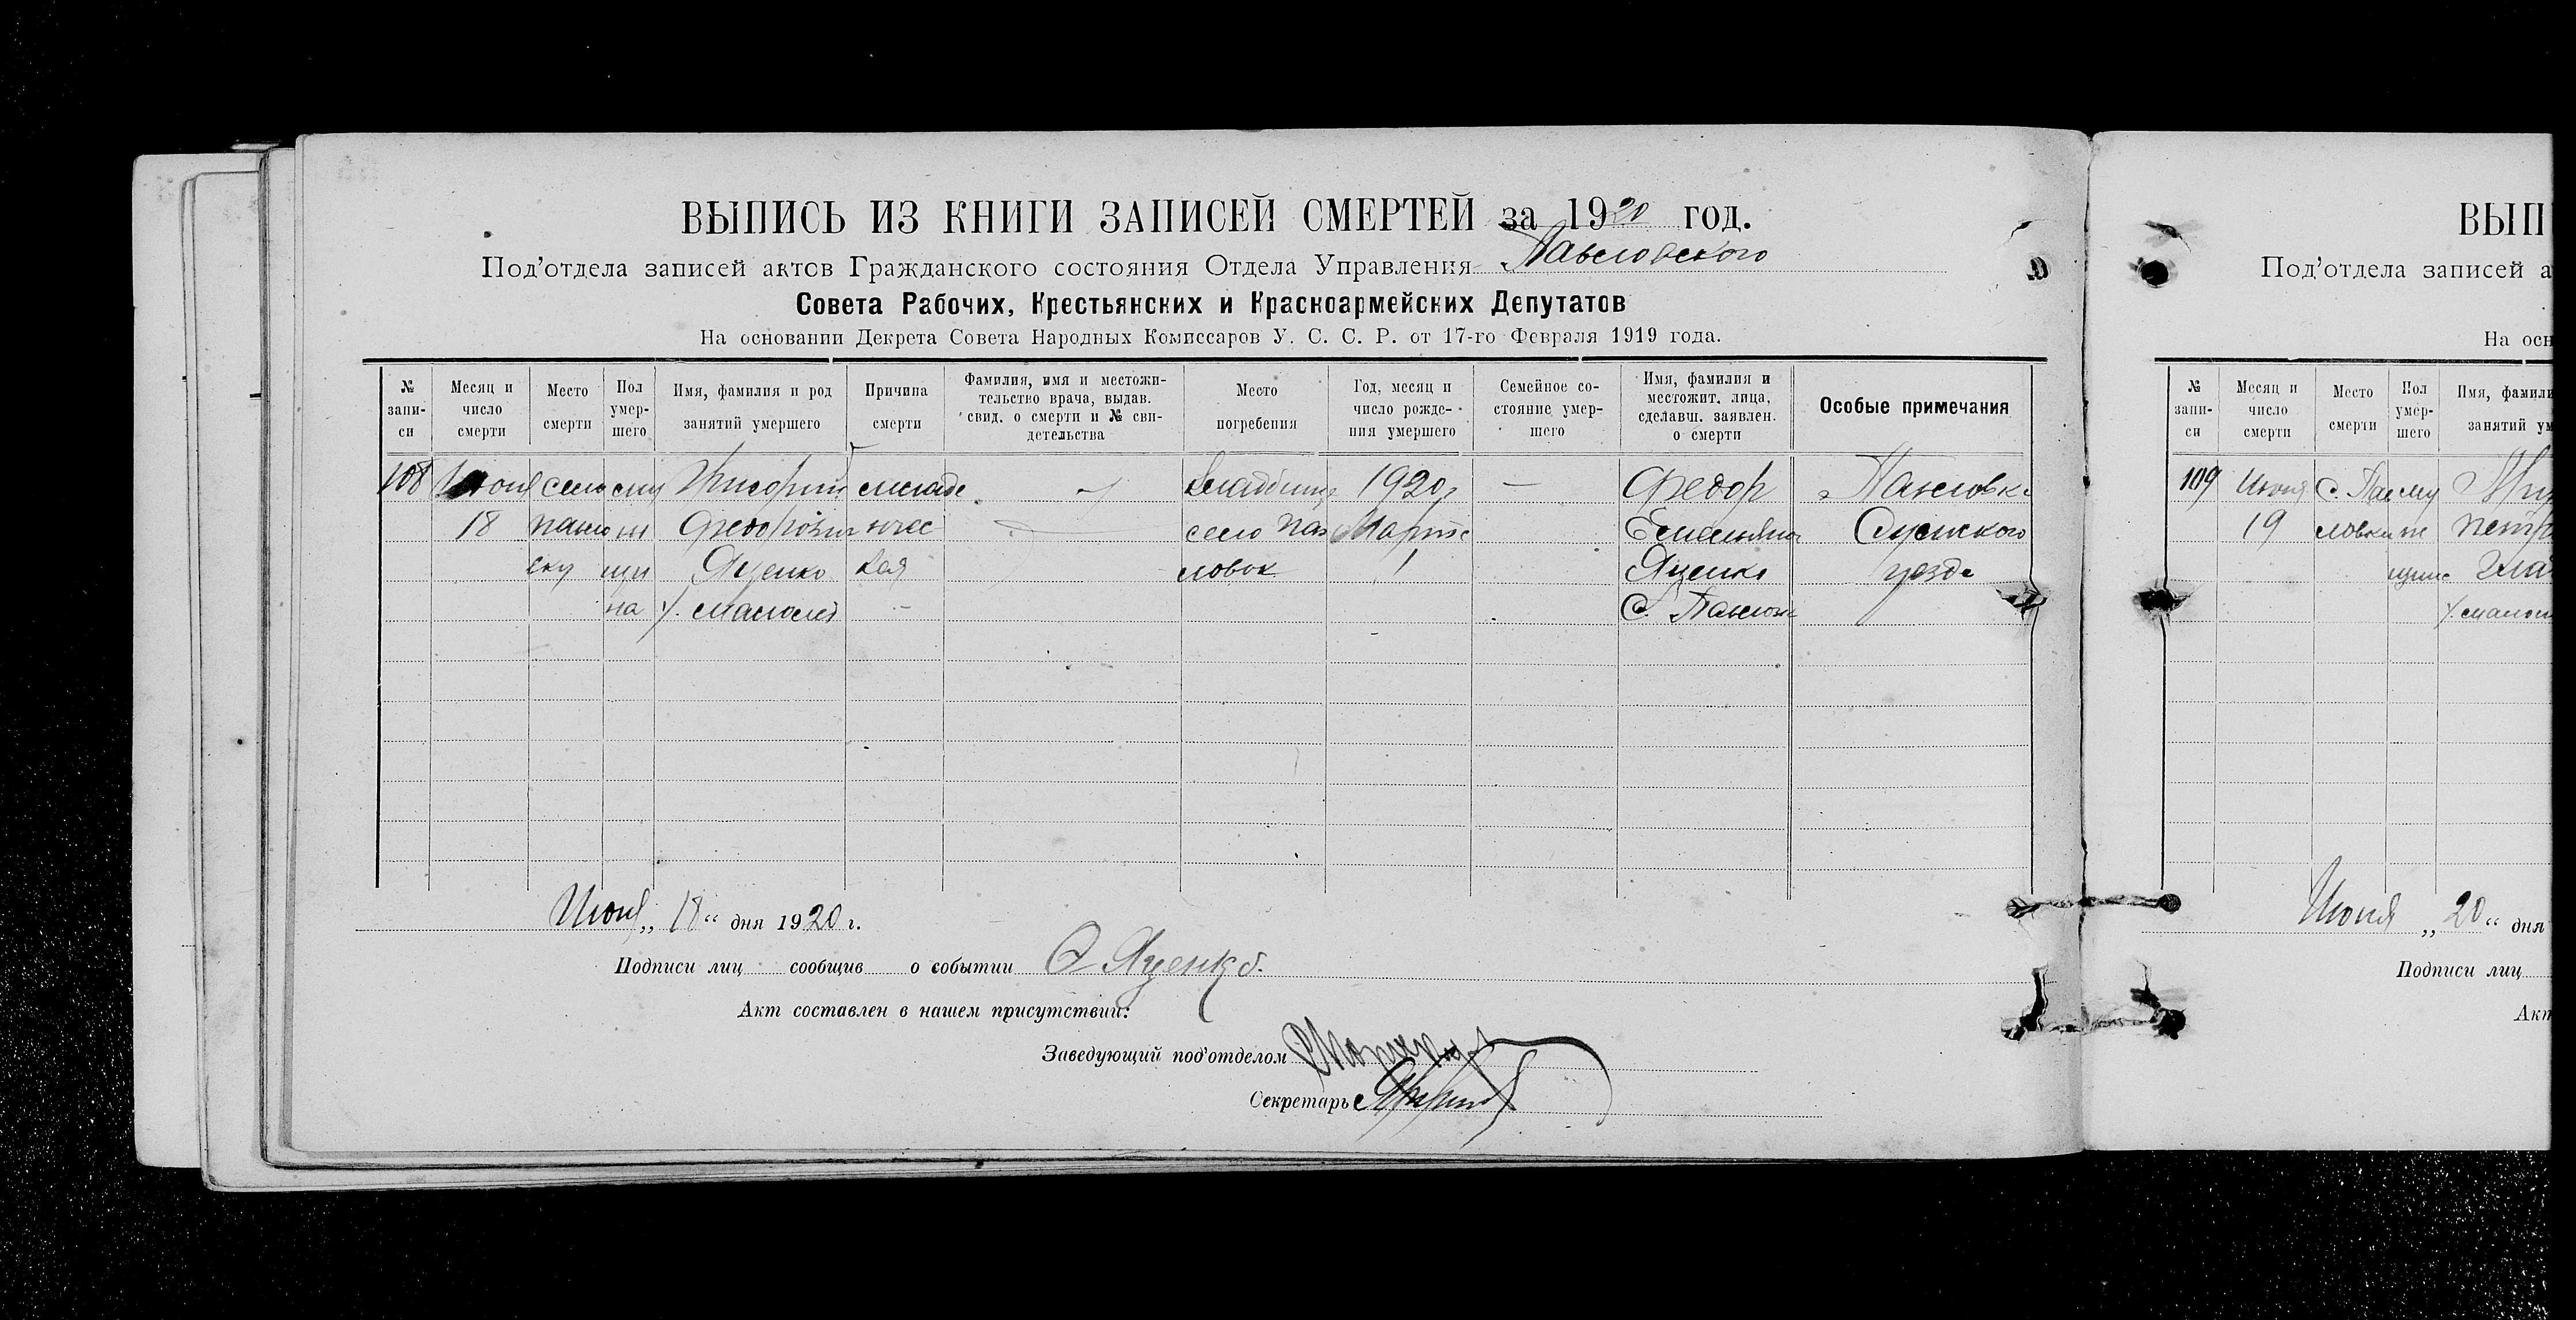 ВЫПИСЬ ИЗ КНИГИ ЗАПИСЕЙ СМЕРТЕЙ за 1920 год.
Под'отдела записей актов Гражданского состояния Отдела Управления Павловского
Совета Рабочих, Крестьянских и Красноармейских Депутатов
На основании Декрета Совета Народных Комиссаров У. С. С. Р. от 17-го Февраля 1919 года.
№ запи-си
Месяц и число смерти
Место смерти
Пол умер-шего
Имя, фамилия и род занятий умершего
Причина смерти
Фамилия, имя и местожи-тельство врача, выдав. свид. о смерти и № сви-детельства
Место погребения
Год, месяц и число рожде-ния умершего
Семейное со-стояние умер-шего
Имя, фамилия и местожит. лица, сделавш. заявлен. о смерти
Особые примечания
108 Июня село 1920 г Федор Павловк
18 Федорович село Пав Марта Емельянов Сумского
щи Яценко кая ловок 1 Яценко уезда
на малолет С. Павловк
Июня „ 18 “ дня 1920 г.
Подписи лиц сообщив о событии Яценко
Акт составлен в нашем присутствии:
Заведующий под'отделом
Секретарь
ВЫП
Под'отдела записей а
На осн
№ запи-си
Месяц и число смерти
Место смерти
Пол умер-шего
Имя, фамили
занятий ум
109 Июня С. Пав му
19 ловки ж Петр
щине
Июня „ 20 “ дня
Подписи лиц
Акт